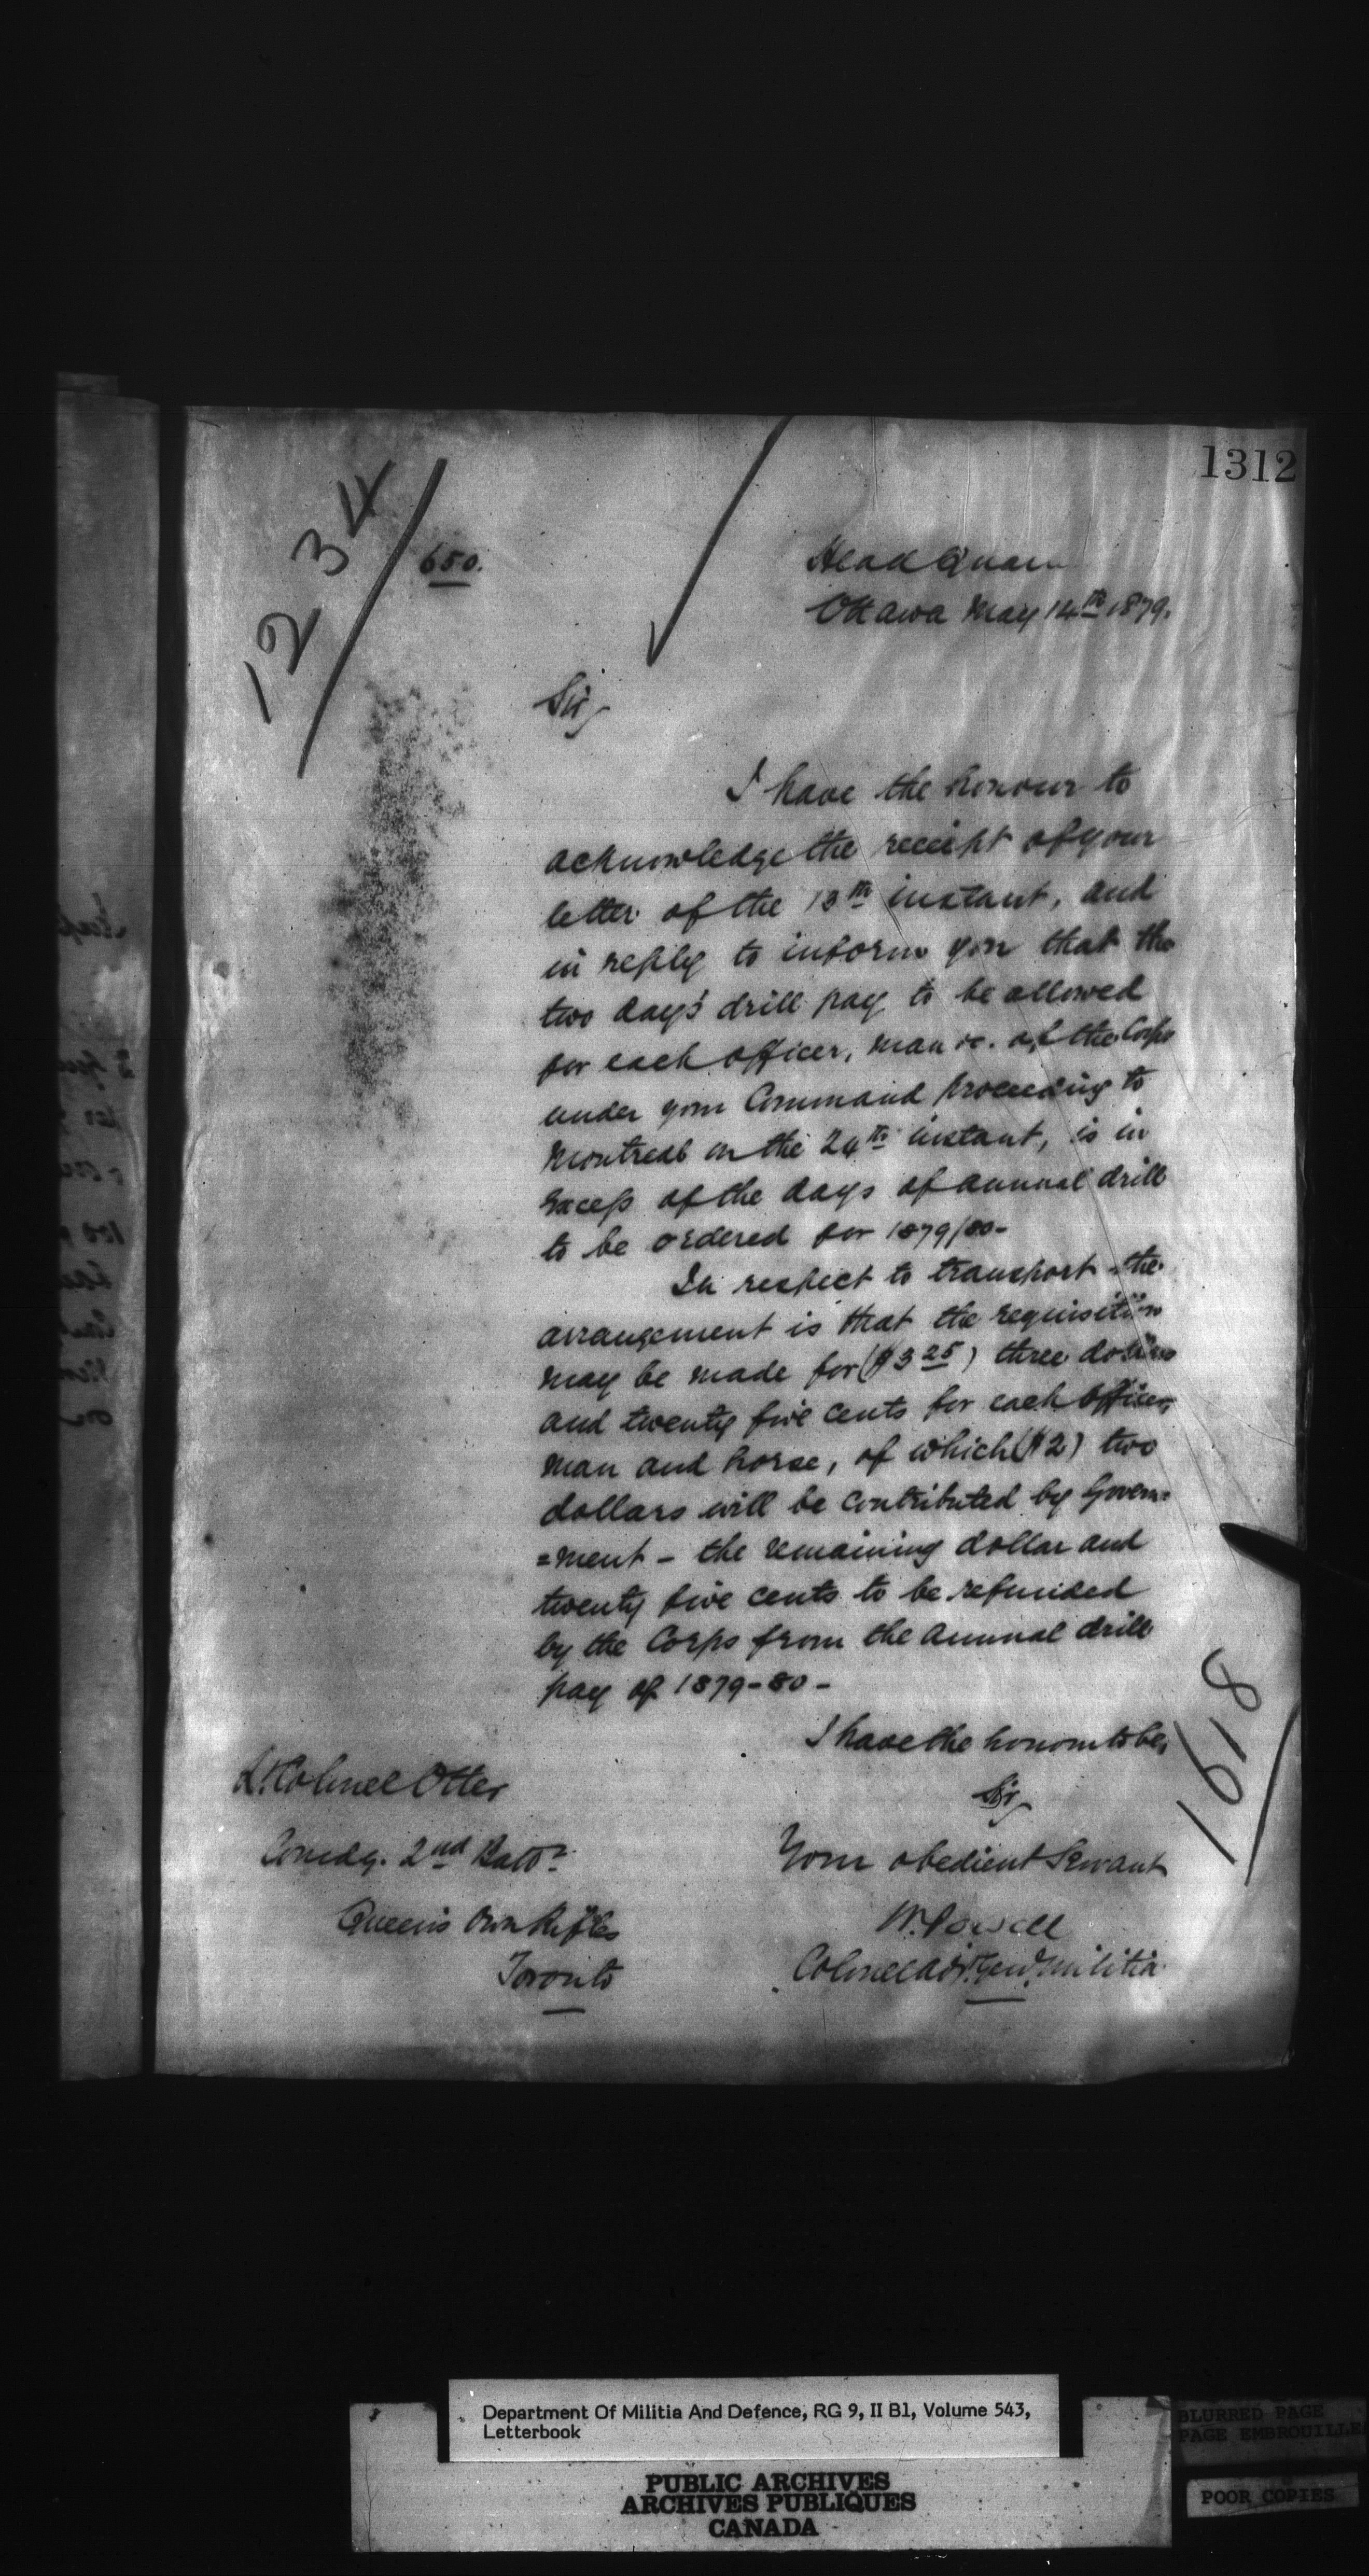 1312
1234
650.
Head Quar
Ottawa May 14th 1879.
Sir,
I have the honour to
acknowledge the receipt of your
letter of the 13th instant, and
in reply to inform you that the
two day's drill pay to be allowed
for each officer, man &c. of the Corps
under your Command proceeding to
Montreal on the 24th instant, is in
excess of the days of annual drill
to be ordered for 1879/80-
In respect to transport - the
arrangement is that the requisition
may be made for ($3 25) three dollars
and twenty five cents for each officer,
man and horse, of which ($2) two
dollars will be contributed by Govern=
=ment - the remaining dollar and
twenty five cents to be refunded
by the Corps from the annual drill
pay of 1879-80-
I have the honour to be,
Sir,
Your obedient Servant
W. Powell
Colonel Adjt. Genl. Militia
Lt. Colonel Otter
Comdg. 2nd Battn
Queen's Own Rifles
Toronto
1618
Department Of Militia And Defence, RG 9, II B1, Volume 543,
Letterbook
PUBLIC ARCHIVES
ARCHIVES PUBLIQUES
CANADA
BLURRED PAGE
PAGE EMBROUILLE
POOR COPIES